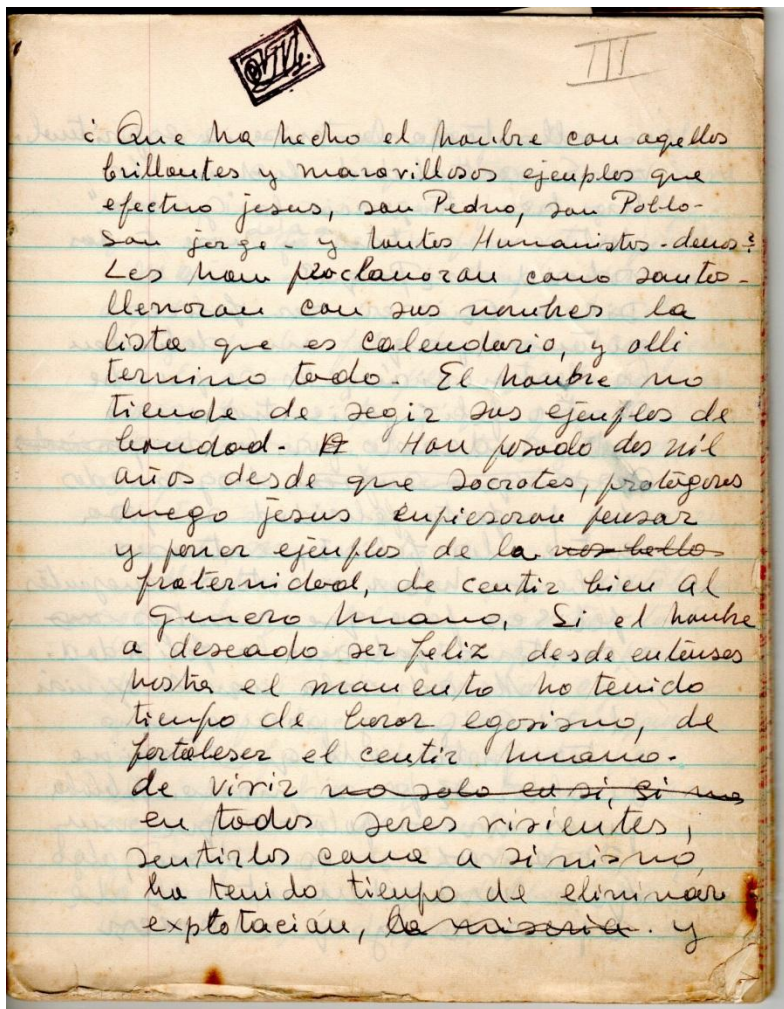 III
¿Que ha hecho el hombre con aqellos
brillantes y maravillosos ejenplos que
efectuo jesus, san Pedro, san Pablo-
San jorge - y tantos Humanistas - demas?
Les han proclamaron como santos-
llenaron con sus nombres la
lista que es calendario, y alli
termino todo. El hombre no
tiende de segir sus ejenplos de
bondad. Han pasado dos mil
años desde que socrates, protágores
luego jesus enpiesaron pensar
y poner ejenplos de la vos bella
fraternidad, de centir bien al
genero humano, Si el hombre
a deseado ser feliz desde entónses
hasta el momento ha tenido
tiempo de borar egosismo, de
fortaleser el centir humano.
de vivir no solo en si, si no
en todos seres visientes,
sentirlos como a si mismo,
ha tenido tiempo de eliminar
explotación, la miseria. y